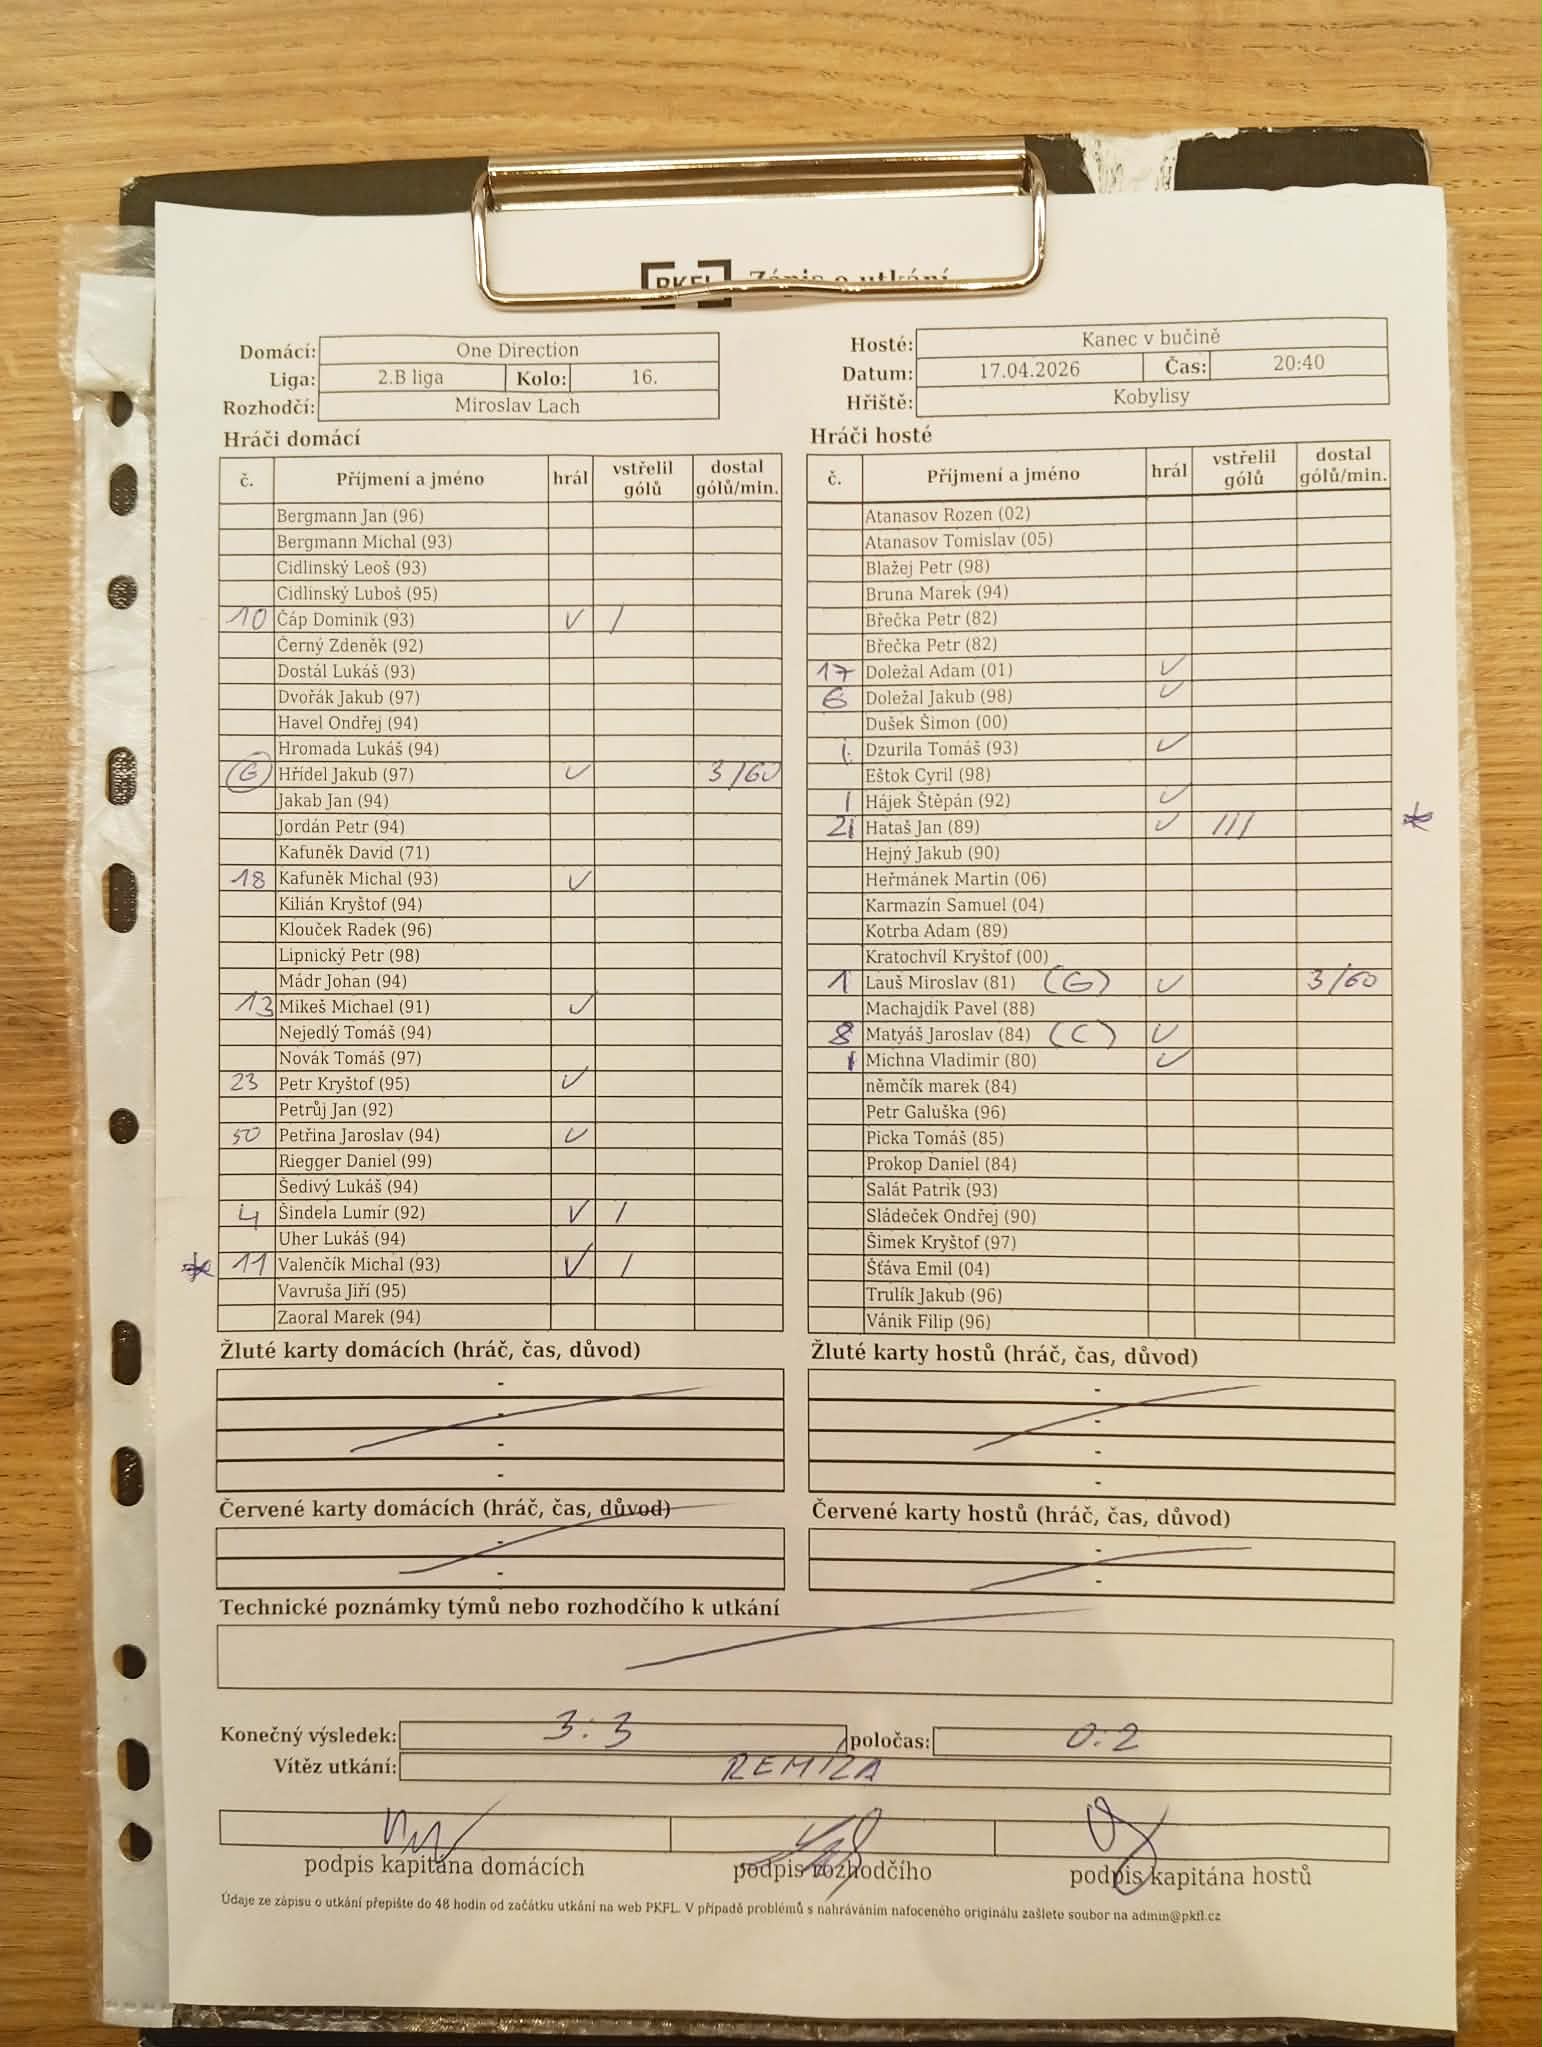 PKFL Zápis o utkání
Domácí: One Direction
Liga: 2.B liga Kolo: 16.
Rozhodčí: Miroslav Lach
Hosté: Kanec v bučině
Datum: 17.04.2026 Čas: 20:40
Hřiště: Kobylisy
Hráči domácí
č. Příjmení a jméno hrál vstřelil gólů dostal gólů/min.
Bergmann Jan (96)
Bergmann Michal (93)
Cidlinský Leoš (93)
Cidlinský Luboš (95)
10 Čáp Dominik (93) ✓ /
Černý Zdeněk (92)
Dostál Lukáš (93)
Dvořák Jakub (97)
Havel Ondřej (94)
Hromada Lukáš (94)
(G) Hřídel Jakub (97) ✓ 3/60
Jakab Jan (94)
Jordán Petr (94)
Kafuněk David (71)
18 Kafuněk Michal (93) ✓
Kilián Kryštof (94)
Klouček Radek (96)
Lipnický Petr (98)
Mádr Johan (94)
13 Mikeš Michael (91) ✓
Nejedlý Tomáš (94)
Novák Tomáš (97)
23 Petr Kryštof (95) ✓
Petrůj Jan (92)
50 Petřina Jaroslav (94) ✓
Riegger Daniel (99)
Šedivý Lukáš (94)
4 Šindela Lumír (92) ✓ /
Uher Lukáš (94)
* 11 Valenčík Michal (93) ✓ /
Vavruša Jiří (95)
Zaoral Marek (94)
Hráči hosté
č. Příjmení a jméno hrál vstřelil gólů dostal gólů/min.
Atanasov Rozen (02)
Atanasov Tomislav (05)
Blažej Petr (98)
Bruna Marek (94)
Břečka Petr (82)
Břečka Petr (82)
17 Doležal Adam (01) ✓
6 Doležal Jakub (98) ✓
Dušek Šimon (00)
Dzurila Tomáš (93) ✓
Eštok Cyril (98)
1 Hájek Štěpán (92) ✓
21 Hataš Jan (89) ✓ /// *
Hejný Jakub (90)
Heřmánek Martin (06)
Karmazín Samuel (04)
Kotrba Adam (89)
Kratochvíl Kryštof (00)
1 Lauš Miroslav (81) (G) ✓ 3/60
Machajdík Pavel (88)
8 Matyáš Jaroslav (84) (C) ✓
Michna Vladimír (80) ✓
němčík marek (84)
Petr Galuška (96)
Picka Tomáš (85)
Prokop Daniel (84)
Salát Patrik (93)
Sládeček Ondřej (90)
Šimek Kryštof (97)
Šťáva Emil (04)
Trulík Jakub (96)
Vánik Filip (96)
Žluté karty domácích (hráč, čas, důvod)
-
-
-
-
Žluté karty hostů (hráč, čas, důvod)
-
-
-
-
Červené karty domácích (hráč, čas, důvod)
-
-
Červené karty hostů (hráč, čas, důvod)
-
-
Technické poznámky týmů nebo rozhodčího k utkání
Konečný výsledek: 3:3 poločas: 0:2
Vítěz utkání: REMÍZA
podpis kapitána domácích podpis rozhodčího podpis kapitána hostů
Údaje ze zápisu o utkání přepište do 48 hodin od začátku utkání na web PKFL. V případě problémů s nahráváním nafoceného originálu zašlete soubor na admin@pkfl.cz